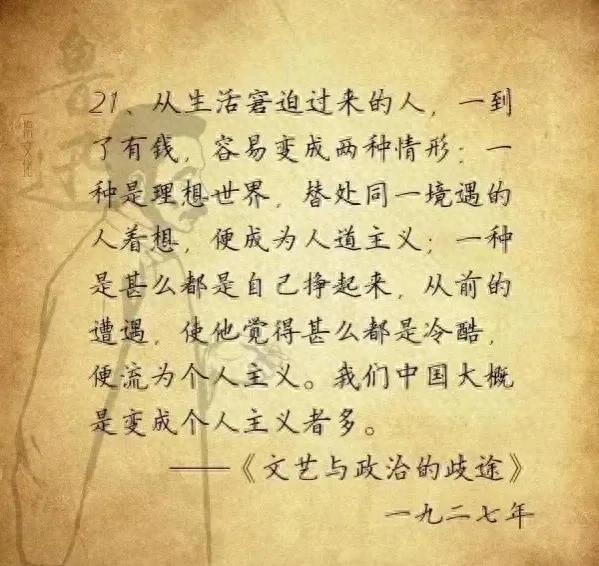 鲁迅
21、从生活窘迫过来的人，一到
了有錢，容易变成两种情形：一
种是理想世界，替处同一境遇的
人着想，便成为人道主义；一种
是甚么都是自己挣起来，从前的
遭遇，使他觉得甚么都是冷酷，
便流为个人主义。我们中国大概
是变成个人主义者多。
——《文艺与政治的歧途》
一九二七年